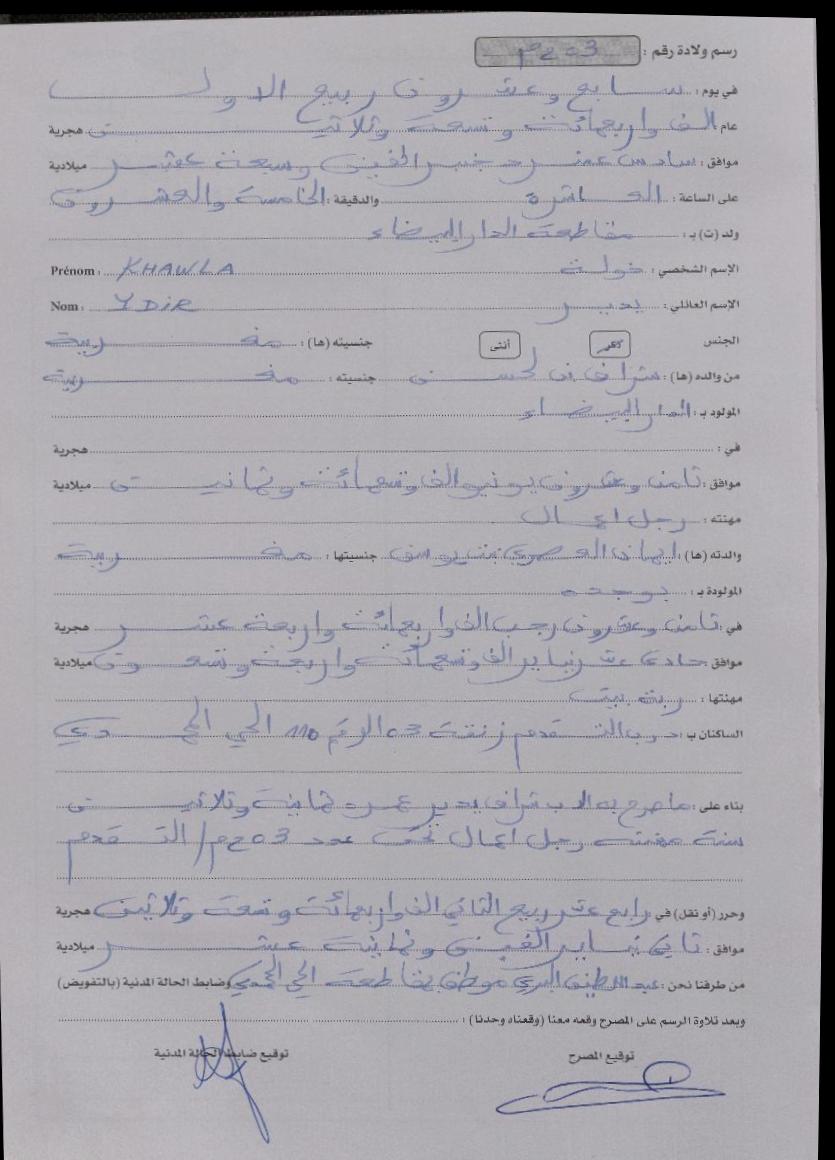 رسم ولادة رقم :
في يوم : سابع وعشرون ربيع الاول
عام الف واربعمائة وتسعة وثلاثين هجرية
موافق : سادس عشر دجنبر الفين وسبعة عشر ميلادية
على الساعة : العاشرة والدقيقة : الخامسة والعشرون
ولد (ت) بـ : مقاطعة الدار البيضاء
الإسم الشخصي : خولة Prénom : KHAWLA
الإسم العائلي : يدير Nom : YDiR
الجنس ذكر أنثى جنسيته (ها) : مغربية
من والده (ها) : لحسن جنسيته : مغربية
المولود بـ : الدار البيضاء
في : هجرية
موافق : ثامن وعشرون يونيو الف وتسعمائة وثمانين ميلادية
مهنته : رجل اعمال
والدته (ها) : ايمان بنت يوسف جنسيتها : مغربية
المولودة بـ : بوجدة
في : ثامن وعشرون رجب الف واربعمائة واربعة عشر هجرية
موافق حادي عشر يناير الف وتسعمائة واربعة وتسعون ميلادية
مهنتها : ربة بيت
الساكنان بـ : درب التقدم زنقة 03 الرقم 110 الحي المحمدي
بناء على : ماصرح به الاب يدير عمره ثمانية وثلاثين
سنة مهنته رجل اعمال تحت عدد التقدم
وحرر (أو نقل) في رابع عشر ربيع الثاني الف واربعمائة وتسعة وثلاثين هجرية
موافق : ثاني يناير الفين وثمانية عشر ميلادية
من طرفنا نحن : عبد اللطيف موظف بمقاطعة الحي المحمدي وضابط الحالة المدنية (بالتفويض)
وبعد تلاوة الرسم على المصرح وقعه معنا (وقعناه وحدنا) :
توقيع المصرح توقيع ضابط الحالة المدنية